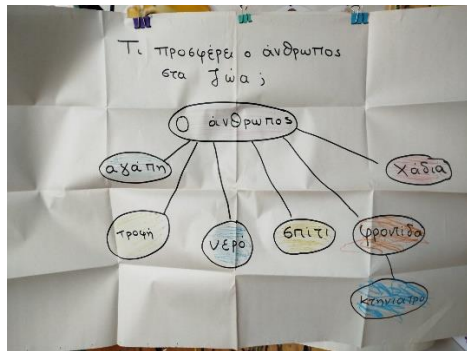 Τι προσφέρει ο άνθρωπος
στα ζώα;
Ο άνθρωπος
αγάπη
χάδια
τροφή
νερό
σπίτι
φροντίδα
κτηνίατρο